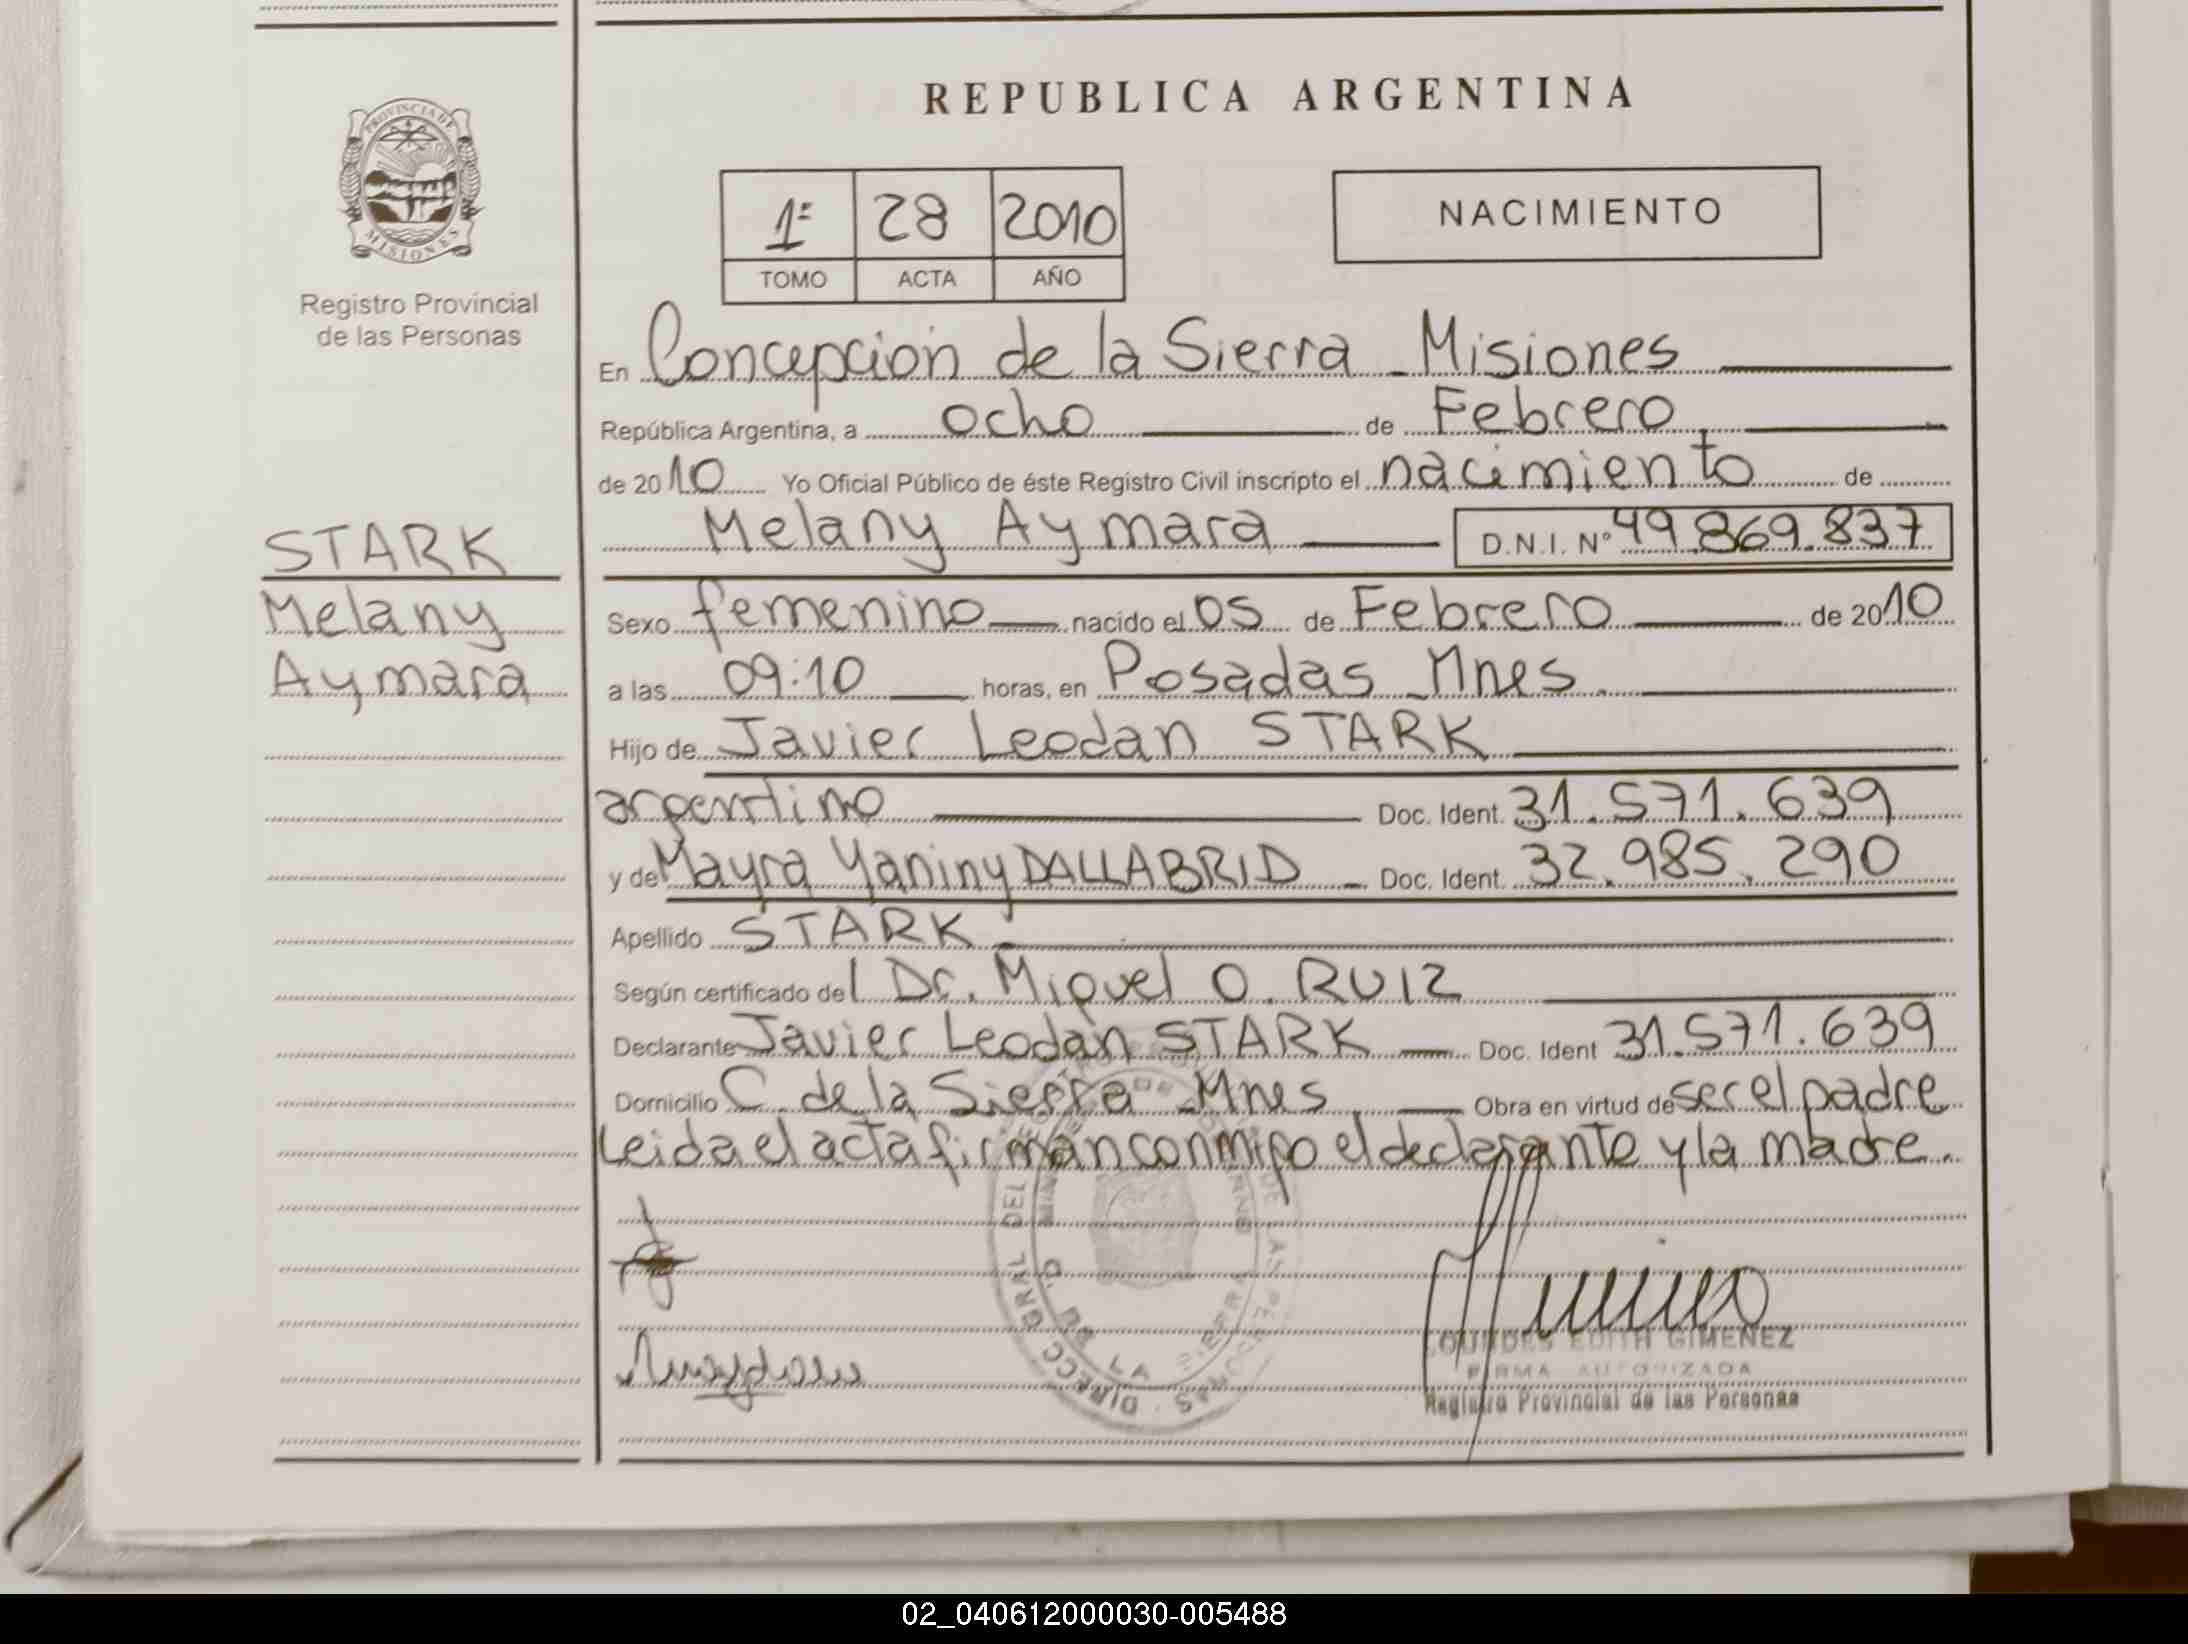 PROVINCIA DE
MISIONES
Registro Provincial
de las Personas
STARK
Melany
Aymara
REPUBLICA ARGENTINA
1º 28 2010
TOMO ACTA AÑO
NACIMIENTO
En Concepcion de la Sierra - Misiones
República Argentina, a ocho de Febrero
de 2010 Yo Oficial Público de éste Registro Civil inscripto el nacimiento de
Melany Aymara D.N.I. Nº 49.869.837
Sexo femenino nacido el 05 de Febrero de 2010
a las 09:10 horas, en Posadas - Mnes.
Hijo de Javier Leodan STARK
argentino Doc. Ident. 31.571.639
y de Mayra Yaniny DALLABRID - Doc. Ident. 32.985.290
Apellido STARK
Según certificado del Dr. Miguel O. RUIZ
Declarante Javier Leodan STARK Doc. Ident 31.571.639
Domicilio C. de la Sierra - Mnes. Obra en virtud de ser el padre
Leida el acta firman conmigo el declarante y la madre.
LOURDES EDITH GIMENEZ
FIRMA AUTORIZADA
Registro Provincial de las Personas
02_040612000030-005488